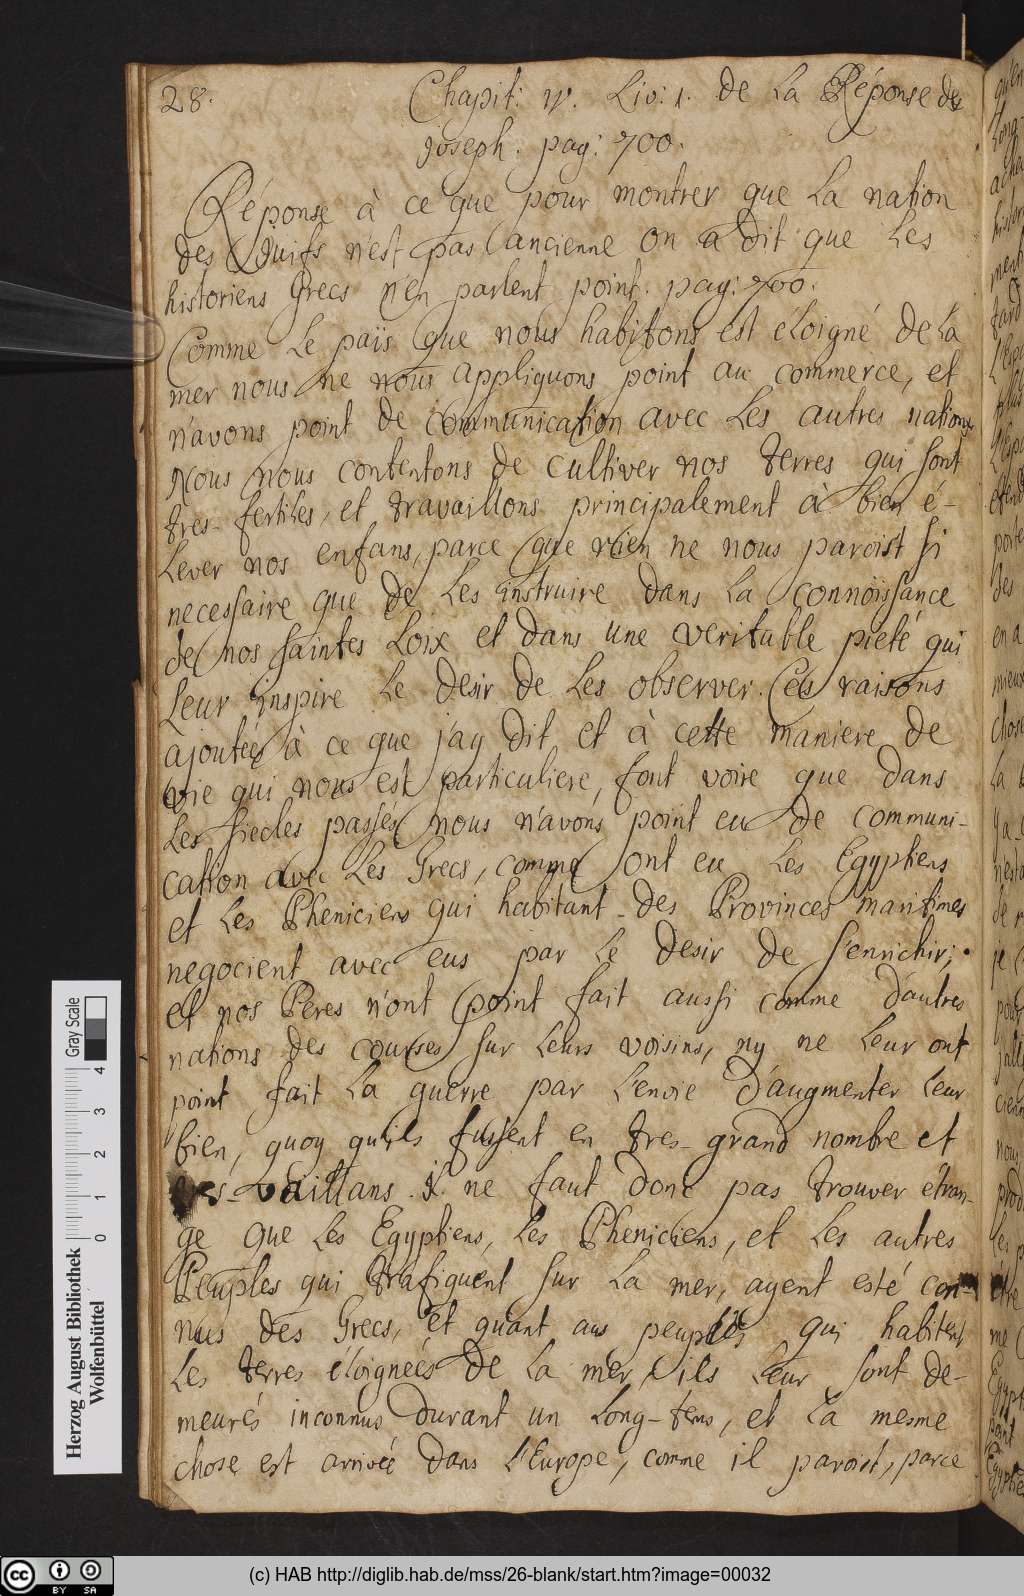 28.
Chapit: IV. Liv: 1. de La Réponse de
Joseph. pag: 700.
Réponse à ce que pour montrer que La nation
des Juifs n'est pas ancienne on a dit que Les
historiens Grecs n'en parlent point. pag: 700.
Comme Le païs que nous habitons est éloigné de La
mer nous ne nous appliquons point au commerce, et
n'avons point de communication avec Les autres nations
Nous nous contentons de cultiver nos terres qui sont
tres-fertiles, et travaillons principalement à bien é-
Lever nos enfans, parce que rien ne nous paroist si
necessaire que de Les instruire dans La connoissance
de nos saintes Loix et dans une veritable pieté qui
Leur inspire Le desir de Les observer. Ces raisons
ajoutées à ce que j'ay dit et à cette maniere de
vie qui nous est particuliere, font voire que dans
Les siecles passés nous n'avons point eu de communi-
cation avec Les Grecs, comme ont eu Les Egyptiens
et Les Pheniciens qui habitant des Provinces maritimes
negocient avec eus par Le desir de s'enrichir;
et nos Peres n'ont point fait aussi comme d'autres
nations des courses sur Leurs voisins, ny ne Leur ont
point fait La guerre par L'envie d'augmenter Leur
bien, quoy qu'ils fussent en tres-grand nombre et
tres-vaillans. il ne faut donc pas trouver étran-
ge que Les Egyptiens, Les Pheniciens, et Les autres
Peuples qui trafiquent sur La mer, ayent esté con-
nus des Grecs, et quant aus peuples qui habitent
Les terres éloignées de La mer, ils Leur sont de-
meurés inconnus durant un Long-tems, et La mesme
chose est arrivée dans L'Europe, comme il paroist, parce
Herzog August Bibliothek
Wolfenbüttel
0 1 2 3 4
Gray Scale
CC BY SA
(c) HAB http://diglib.hab.de/mss/26-blank/start.htm?image=00032